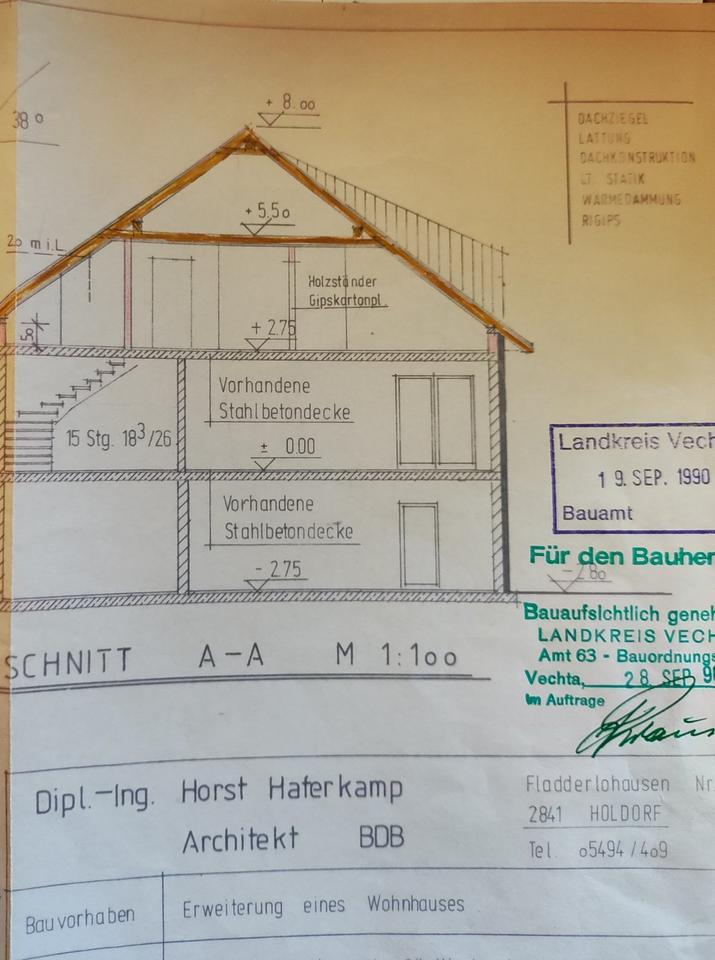 + 8.00
38°
DACHZIEGEL
LATTUNG
DACHKONSTRUKTION
LT. STATIK
WÄRMEDÄMMUNG
RIGIPS
+ 5.50
20 m i.L.
Holzständer
Gipskartonpl.
+ 2.75
50
Vorhandene
Stahlbetondecke
15 Stg. 18³/26
± 0.00
Landkreis Vech
19. SEP. 1990
Bauamt
Vorhandene
Stahlbetondecke
Für den Bauher
- 2.75
- 2.80
Bauaufsichtlich geneh
LANDKREIS VECH
Amt 63 - Bauordnungs
Vechta, 28. SEP. 90
Im Auftrage
SCHNITT A-A M 1:100
Dipl.-Ing. Horst Haferkamp
Architekt BDB
Fladderlohausen Nr.
2841 HOLDORF
Tel. 05494/409
Bauvorhaben
Erweiterung eines Wohnhauses